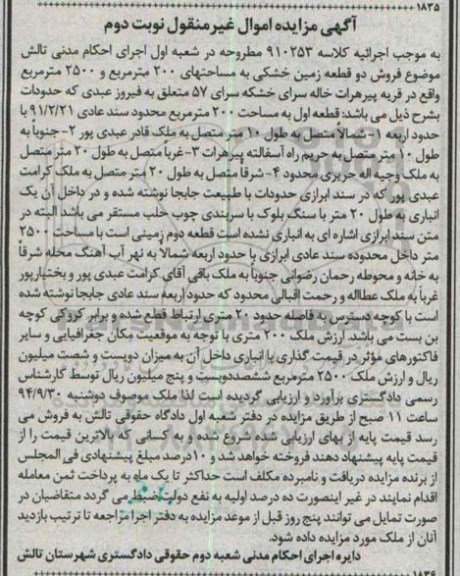 ۱۸۳۵
آگهی مزایده اموال غیرمنقول نوبت دوم
به موجب اجرائیه کلاسه ۹۱۰۲۵۳ مطروحه در شعبه اول اجرای احکام مدنی تالش
موضوع فروش دو قطعه زمین خشکی به مساحتهای ۲۰۰ مترمربع و ۲۵۰۰ مترمربع
واقع در قریه پیرهرات خاله سرای خشکه سرای ۵۷ متعلق به فیروز عبدی که حدودات
بشرح ذیل می باشد: قطعه اول به مساحت ۲۰۰ مترمربع محدود سند عادی ۹۱/۲/۲۱ با
حدود اربعه ۱- شمالاً متصل به طول ۱۰ متر متصل به ملک قادر عبدی پور ۲- جنوباً به
طول ۱۰ متر متصل به حریم راه آسفالته پیرهرات ۳-غرباً متصل به طول ۲۰ متر متصل
به ملک وجیه اله حریری محدود ۴- شرقا متصل به طول ۲۰ متر متصل به ملک کرامت
عبدی پور که در سند ابرازی حدودات با طبیعت جابجا نوشته شده و در داخل آن یک
انباری به طول ۲۰ متر با سنگ بلوک با سربندی چوب حلب مستقر می باشد البته در
متن سند ابرازی اشاره ای به انباری نشده است قطعه دوم زمینی است با مساحت ۲۵۰۰
متر داخل محدوده سند عادی ابرازی با حدود اربعه شمالاً به نهر آب آهنگ محله شرقاً
به خانه و محوطه رحمان رضوانی جنوباً به ملک باقی آقای کرامت عبدی پور و بختیارپور
غرباً به ملک عطااله و رحمت اقبالی محدود که حدود اربعه سند عادی جابجا نوشته شده
است با کوچه دسترس به فاصله حدود ۲۰ متری ارتباط قطع شده و برابر کروکی کوچه
بن بست می باشد. ارزش ملک ۲۰۰ متری با توجه به موقعیت مکان جغرافیایی و سایر
فاکتورهای مؤثر در قیمت گذاری با انباری داخل آن به میزان دویست و شصت میلیون
ریال و ارزش ملک ۲۵۰۰ مترمربع ششصدودویست و پنج میلیون ریال توسط کارشناس
رسمی دادگستری برآورد و ارزیابی گردیده است لذا ملک موصوف دوشنبه ۹۴/۹/۳۰
ساعت ۱۱ صبح از طریق مزایده در دفتر شعبه اول دادگاه حقوقی تالش به فروش می
رسد قیمت پایه از بهای ارزیابی شده شروع شده و به کسانی که بالاترین قیمت را از
قیمت پایه پیشنهاد دهند فروخته خواهد شد و ۱۰درصد مبلغ پیشنهادی فی المجلس
از برنده مزایده دریافت و نامبرده مکلف است حداکثر تا یک ماه به پرداخت ثمن معامله
اقدام نمایند در غیر اینصورت ده درصد اولیه به نفع دولت ضبط می گردد متقاضیان در
صورت تمایل می توانند پنج روز قبل از موعد مزایده به دفتر اجرا مراجعه تا ترتیب بازدید
آنان از ملک مورد مزایده داده شود.
دایره اجرای احکام مدنی شعبه دوم حقوقی دادگستری شهرستان تالش
۱۸۳۶